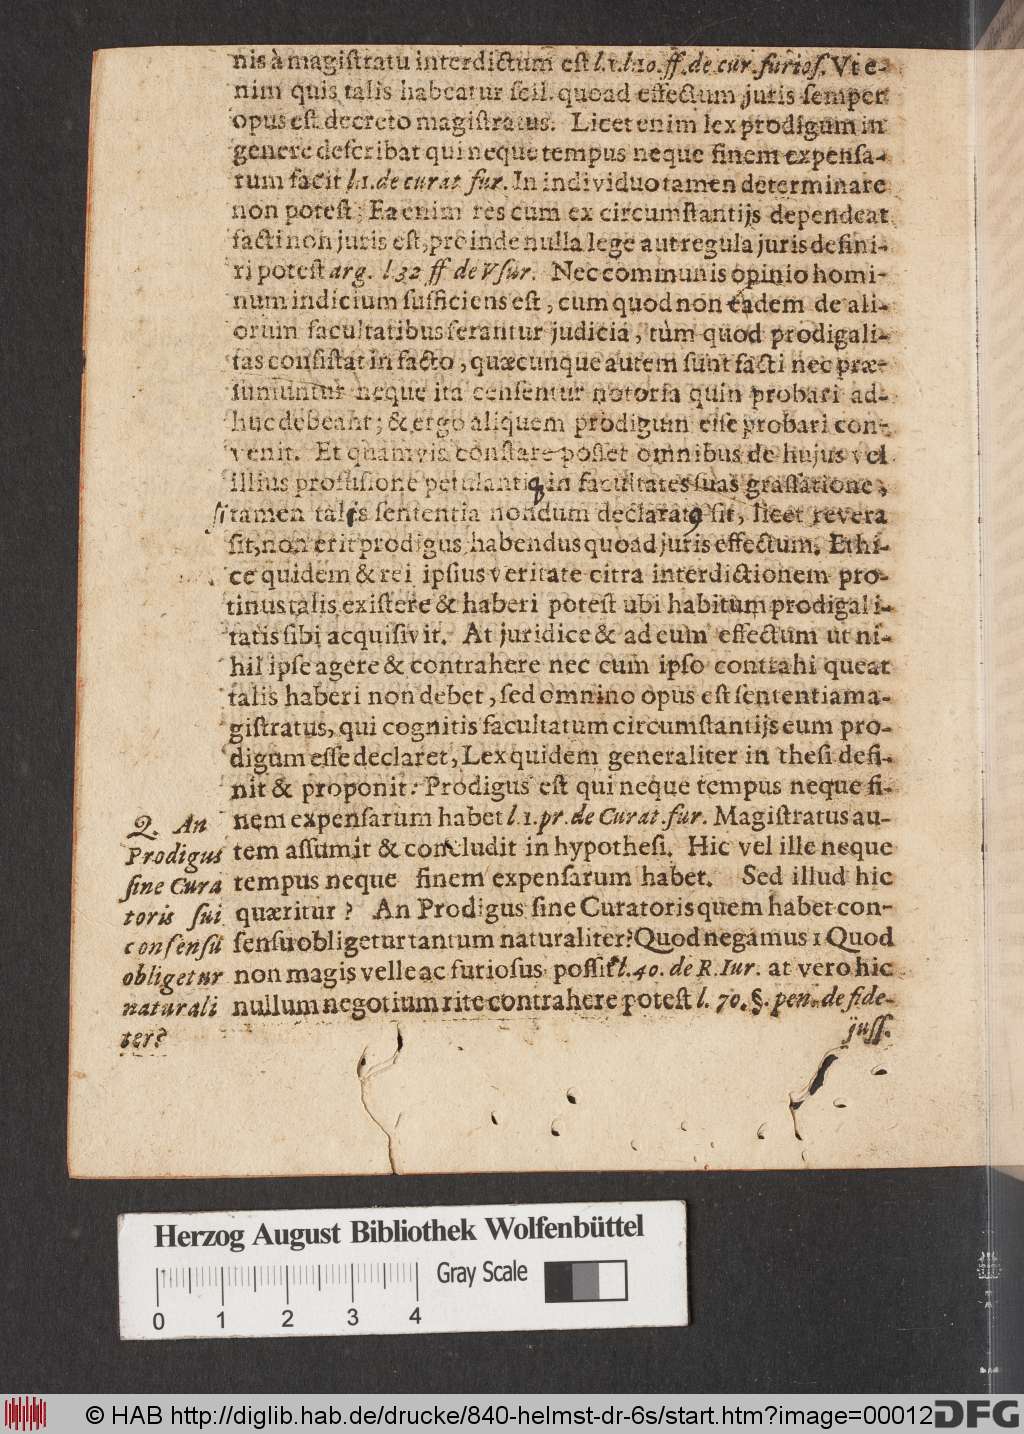 nis à magiſtratu interdictum eſt l.1.l.10.ff.de cur.furioſ. Vt e-
nim quis talis habeatur ſcil. quoad effectum juris ſemper
opus eſt decreto magiſtratus. Licet enim lex prodigum in
genere deſcribat qui neque tempus neque finem expenſa-
rum facit l.1.de curat fur. In individuo tamen determinare
non poteſt; Ea enim res cum ex circumſtantijs dependeat
facti non juris eſt, proinde nulla lege aut regula juris defini-
ri poteſt arg. l.32 ff de Vſur. Nec communis opinio homi-
num indicium ſufficiens eſt, cum quod non eadem de ali-
orum facultatibus ferantur judicia, tùm quod prodigali-
tas conſiſtat in facto, quæcunque autem ſunt facti nec præ-
ſumuntur neque ita cenſentur notoria quin probari ad-
huc debeant; & ergo aliquem prodigum eſſe probari con-
venit. Et quamvia conſtare poſſet omnibus de hujus vel
illius profuſione petulantiq; in facultates ſuas graſſatione,
ſi tamen talis ſententia nondum declaratꝰ ſit, licet revera
ſit, non erit prodigus habendus quoad juris effectum. Et hi-
ce quidem & rei ipſius veritate citra interdictionem pro-
tinus talis exiſtere & haberi poteſt ubi habitum prodigali-
tatis ſibi acquiſivit. At juridice & ad eum effectum ut ni-
hil ipſe agere & contrahere nec cum ipſo contrahi queat
talis haberi non debet, ſed omnino opus eſt ſententia ma-
giſtratus, qui cognitis facultatum circumſtantijs eum pro-
digum eſſe declaret, Lex quidem generaliter in theſi defi-
nit & proponit: Prodigus eſt qui neque tempus neque fi-
nem expenſarum habet l.1.pr.de Curat.fur. Magiſtratus au-
tem aſſumit & concludit in hypotheſi. Hic vel ille neque
tempus neque finem expenſarum habet. Sed illud hic
quæritur? An Prodigus ſine Curatoris quem habet con-
ſenſu obligetur tantum naturaliter? Quod negamus 1 Quod
non magis velle ac furioſus poſſit l.40. de R.Iur. at vero hic
nullum negotium rite contrahere poteſt l. 70.§. pen. de fide-
juſſ.
2. An
Prodigus
ſine Cura
toris ſui
conſenſu
obligetur
naturali
ter?
Herzog August Bibliothek Wolfenbüttel
Gray Scale
0 1 2 3 4
© HAB http://diglib.hab.de/drucke/840-helmst-dr-6s/start.htm?image=00012
DFG